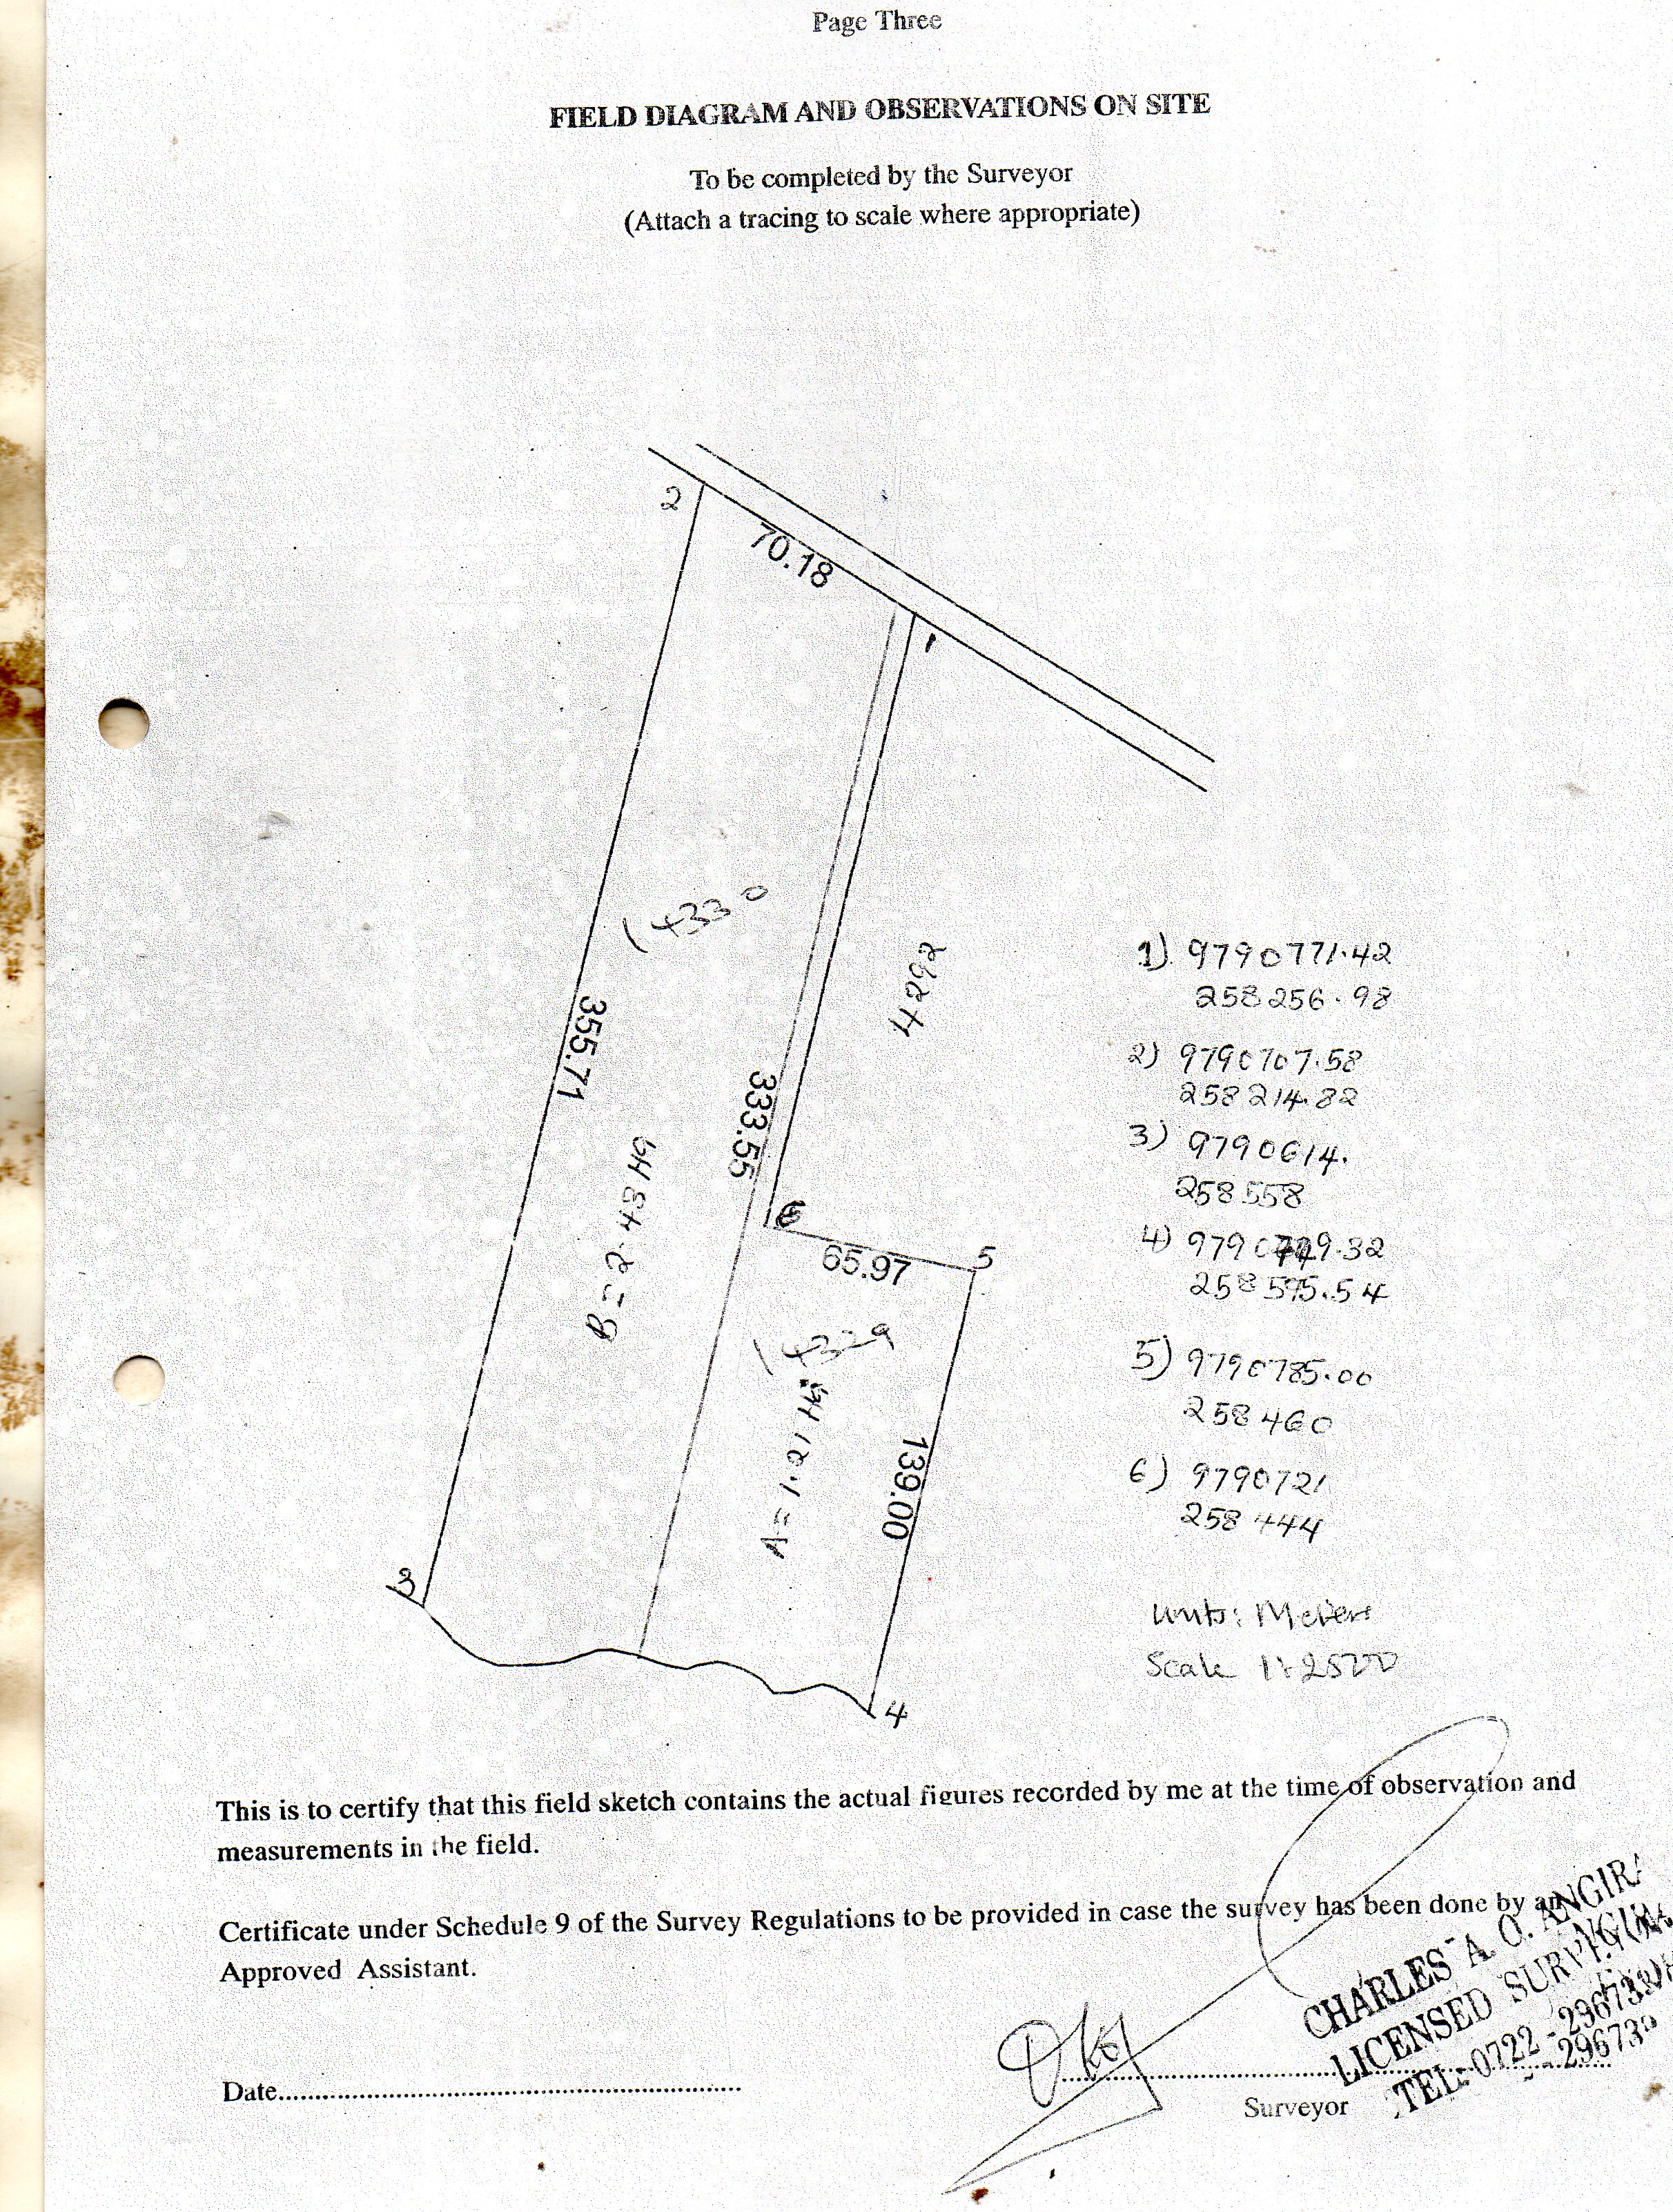 Page Three
FIELD DIAGRAM AND OBSERVATIONS ON SITE
To be completed by the Surveyor
(Attach a tracing to scale where appropriate)
2
70.18
1
14330
4292
355.71
333.55
B = 2.48 Ha
6
5
65.97
14329
A = 1.21 Ha
139.00
3
4
1) 9790771.42
258256.98
2) 9790707.58
258214.82
3) 9790614.
258558
4) 9790729.32
258595.54
5) 9790785.00
258460
6) 9790721
258444
Units: Meters
Scale 1:2500
This is to certify that this field sketch contains the actual figures recorded by me at the time of observation and
measurements in the field.
Certificate under Schedule 9 of the Survey Regulations to be provided in case the survey has been done by an
Approved Assistant.
CHARLES A. O. ANGIRA
LICENSED SURVEYOR
TEL: 0722 - 296739
Date
Surveyor